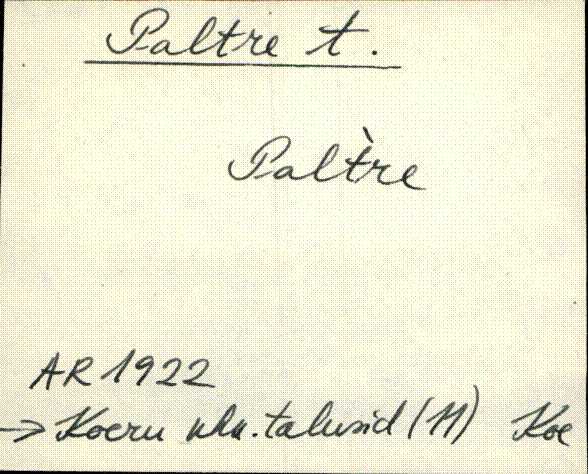 Paltre t.
Pal̀tre
AR 1922
→ Koeru khk. talusid (11) Koe